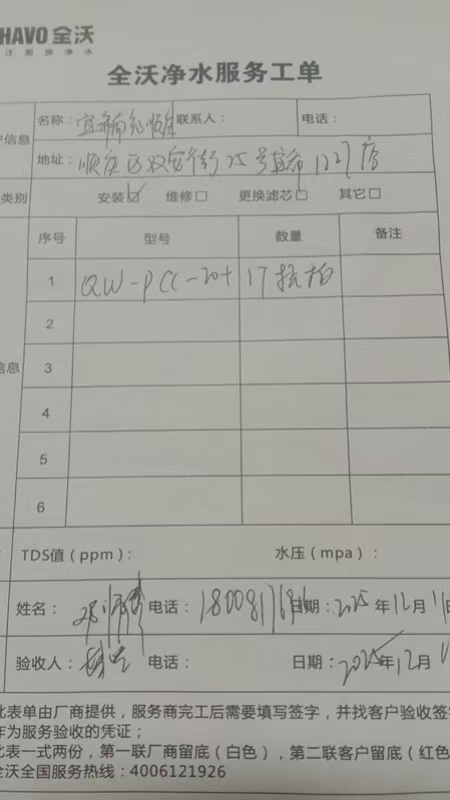 HAVO 全沃
注厨房净水
全沃净水服务工单
信息 名称： 联系人： 电话：
地址：顺庆区双女街25号 1227店
类别 安装☑ 维修□ 更换滤芯□ 其它□
序号 型号 数量 备注
1 QW-PCC-20+ 1T
2
信息 3
4
5
6
TDS值（ppm）： 水压（mpa）：
姓名： 电话：1800817 日期：2025年12月11日
验收人： 电话： 日期：2025年12月
此表单由厂商提供，服务商完工后需要填写签字，并找客户验收签
作为服务验收的凭证；
此表一式两份，第一联厂商留底（白色），第二联客户留底（红色
全沃全国服务热线：4006121926